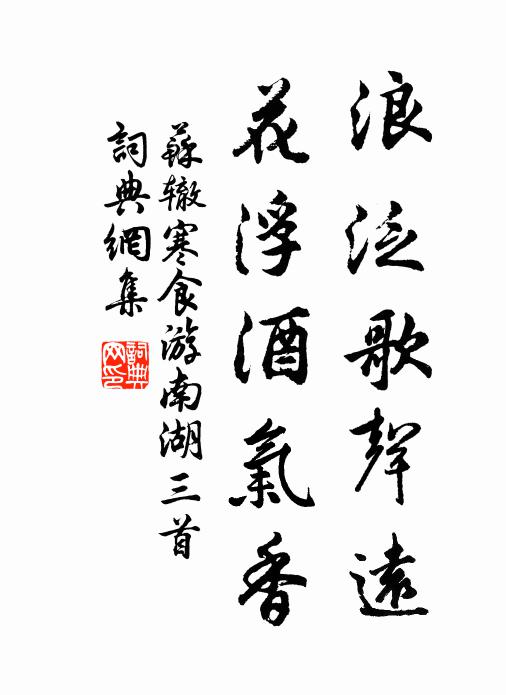 浪泛歌聲遠
花浮酒氣香
蘇辙寒食游南湖三首
詞典網集
詞典
网印